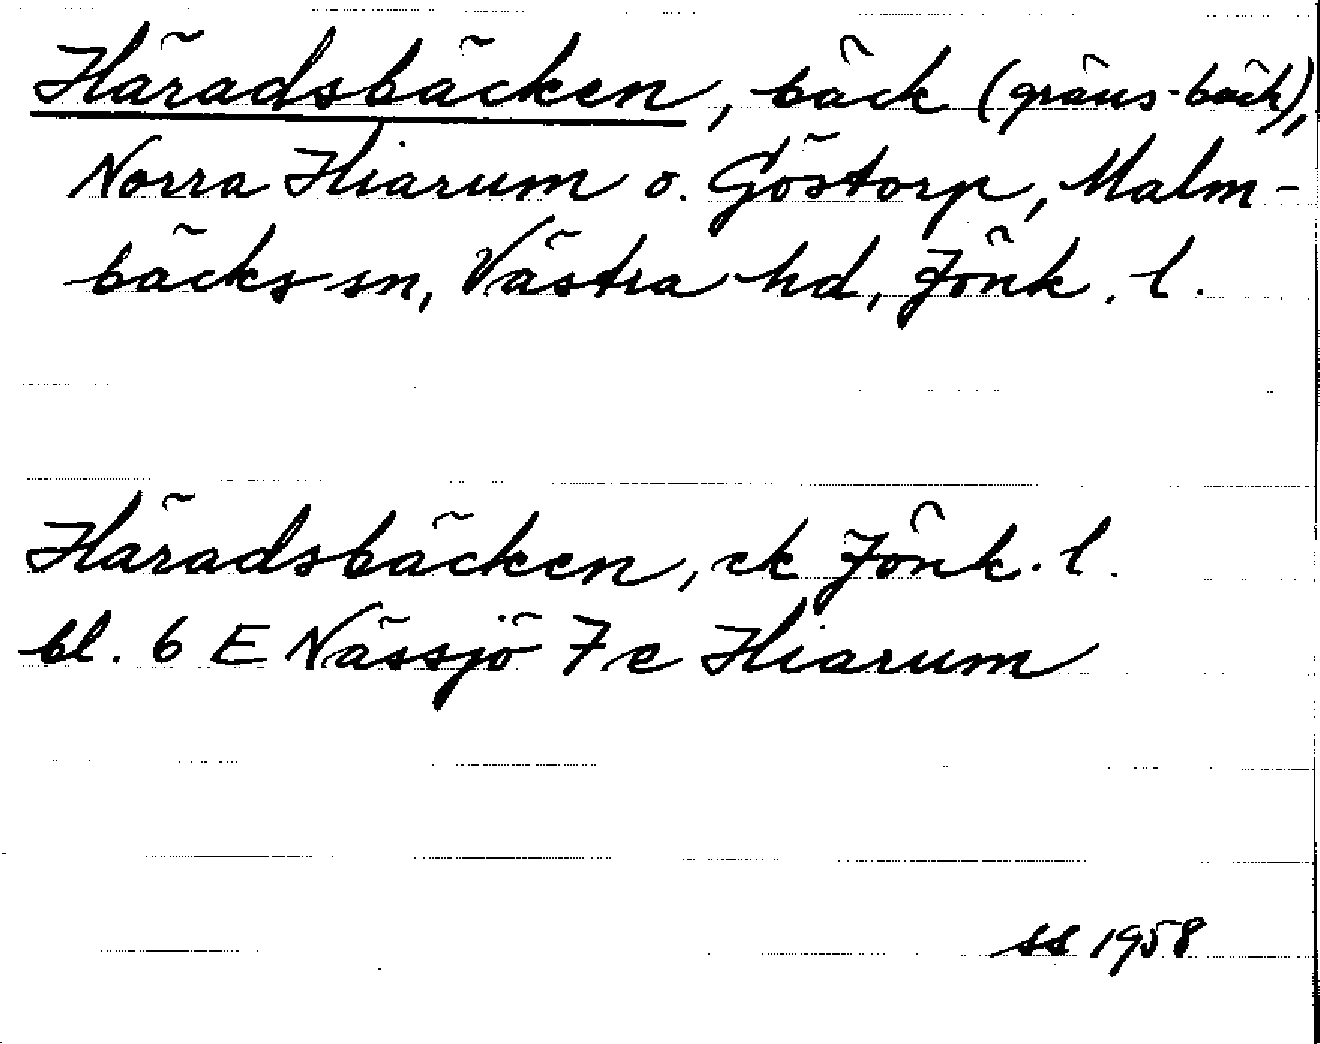 Häradsbäcken, bäck (gräns-bäck),
Norra Hiarum o. Göstorp, Malm-
bäcks sn, Västra hd, Jönk. l.
Häradsbäcken, ek Jönk. l.
bl. 6 E Nässjö 7 c Hiarum
SS 1958